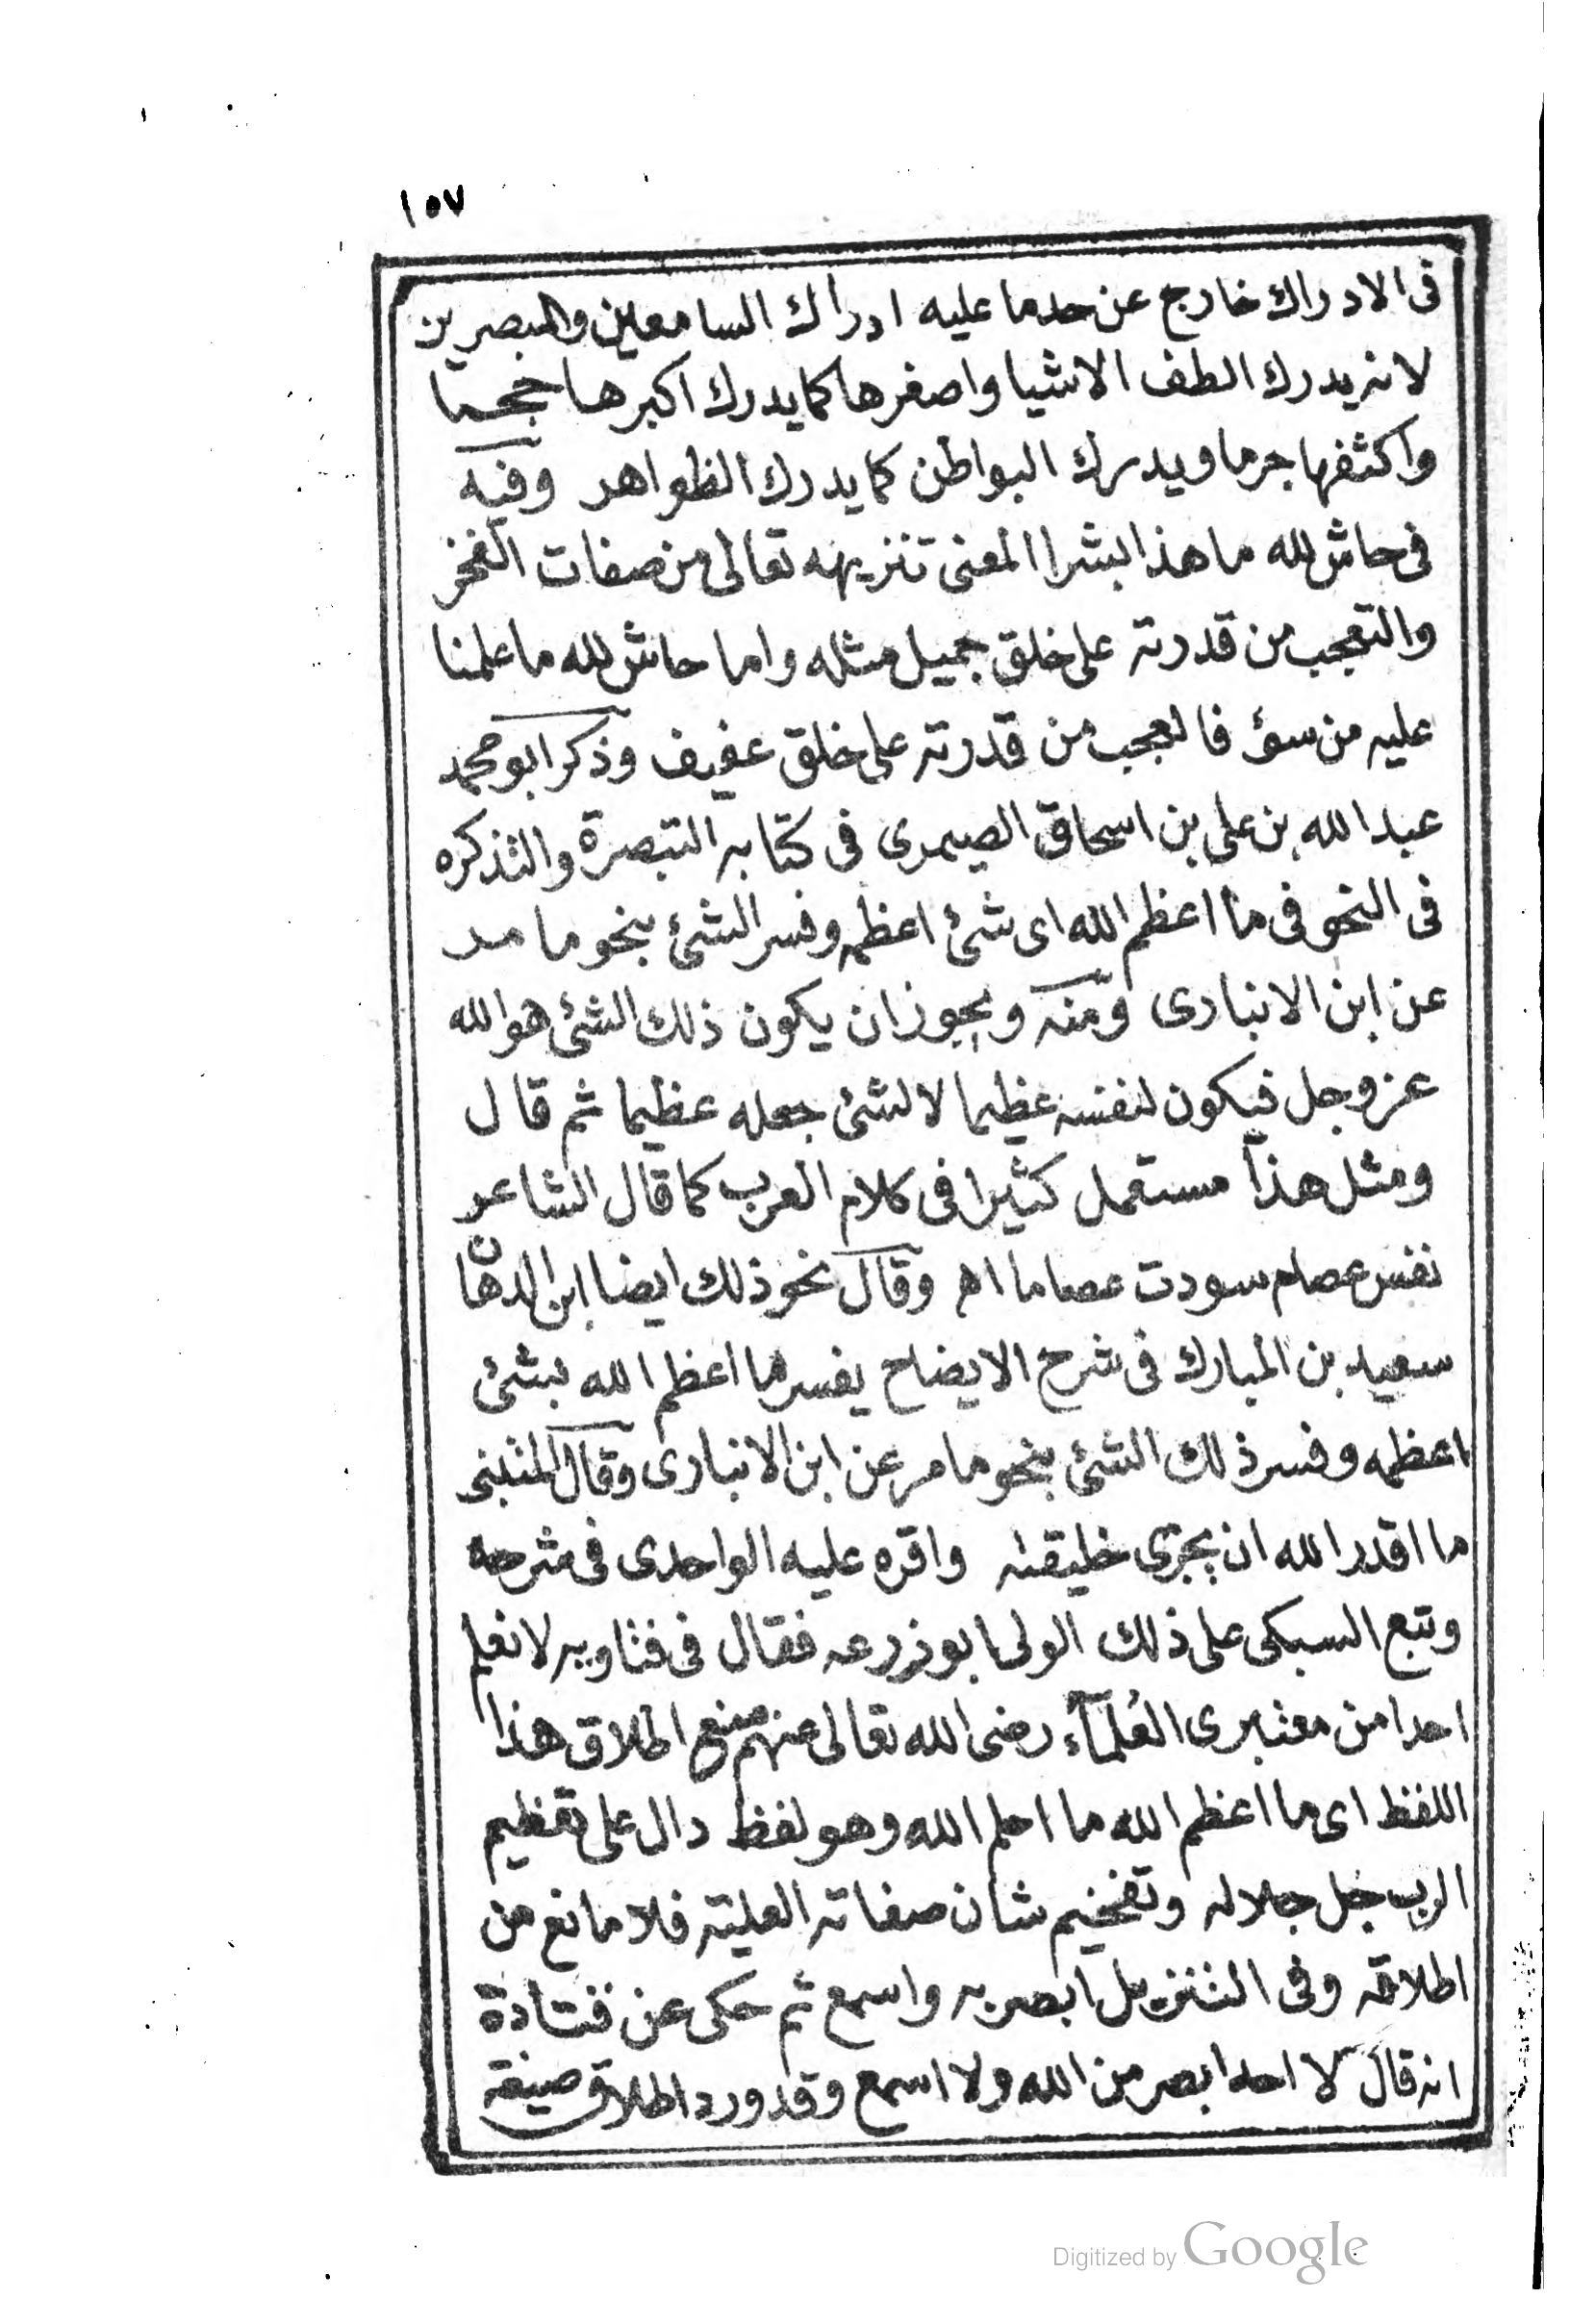 ١٥٧
فى الادراك خارج عن حد ما عليه ادراك السامعين والمبصرين
لانه يدرك الطف الاشيا واصغرها كما يدرك اكبرها حجما
واكثفها جرما ويدرك البواطن كما يدرك الظواهر وفيه
فى حاش لله ما هذا بشرا المعنى تنزيهه تعالى من صفات الفخر
والتعجب من قدرته على خلق جميل مثله واما حاش لله ما علمنا
عليه من سؤ فالعجب من قدرته على خلق عفيف وذكر ابو محمد
عبد الله بن على بن اسحاق الصيمرى فى كتابه التبصرة والتذكره
فى النحو فى ما اعظم الله اى شئ اعظمه وفسر الشئ بنحو ما مر
عن ابن الانبارى ومنه ويجوز ان يكون ذلك الشئ هو الله
عز وجل فيكون لنفسه عظيما لا لشئ جعله عظيما ثم قال
ومثل هذا مستعمل كثيرا فى كلام العرب كما قال الشاعر
نفس عصام سودت عصاما اه وقال نحو ذلك ايضا ابن الدهان
سعيد بن المبارك فى شرح الايضاح يفسر ما اعظم الله بشئ
اعظمه وفسر ذلك الشئ بنحو ما مر عن ابن الانبارى وقال المتنبى
ما اقدر الله ان يجزى خليقته واقره عليه الواحدى فى شرحه
وتبع السبكى على ذلك الولى ابو زرعه فقال فى فتاويه لا نعلم
احدا من معتبرى العُلمآء رضى الله تعالى عنهم منع اطلاق هذا
اللفظ اى ما اعظم الله ما احلم الله وهو لفظ دال على تعظيم
الرب جل جلاله وتفخيم شان صفاته العليته فلا مانع من
اطلاقه وفى التنزيل ابصر به واسمع ثم حكى عن قتادة
انه قال لا احد ابصر من الله ولا اسمع وقد ورد اطلاق صيغة
Digitized by Google